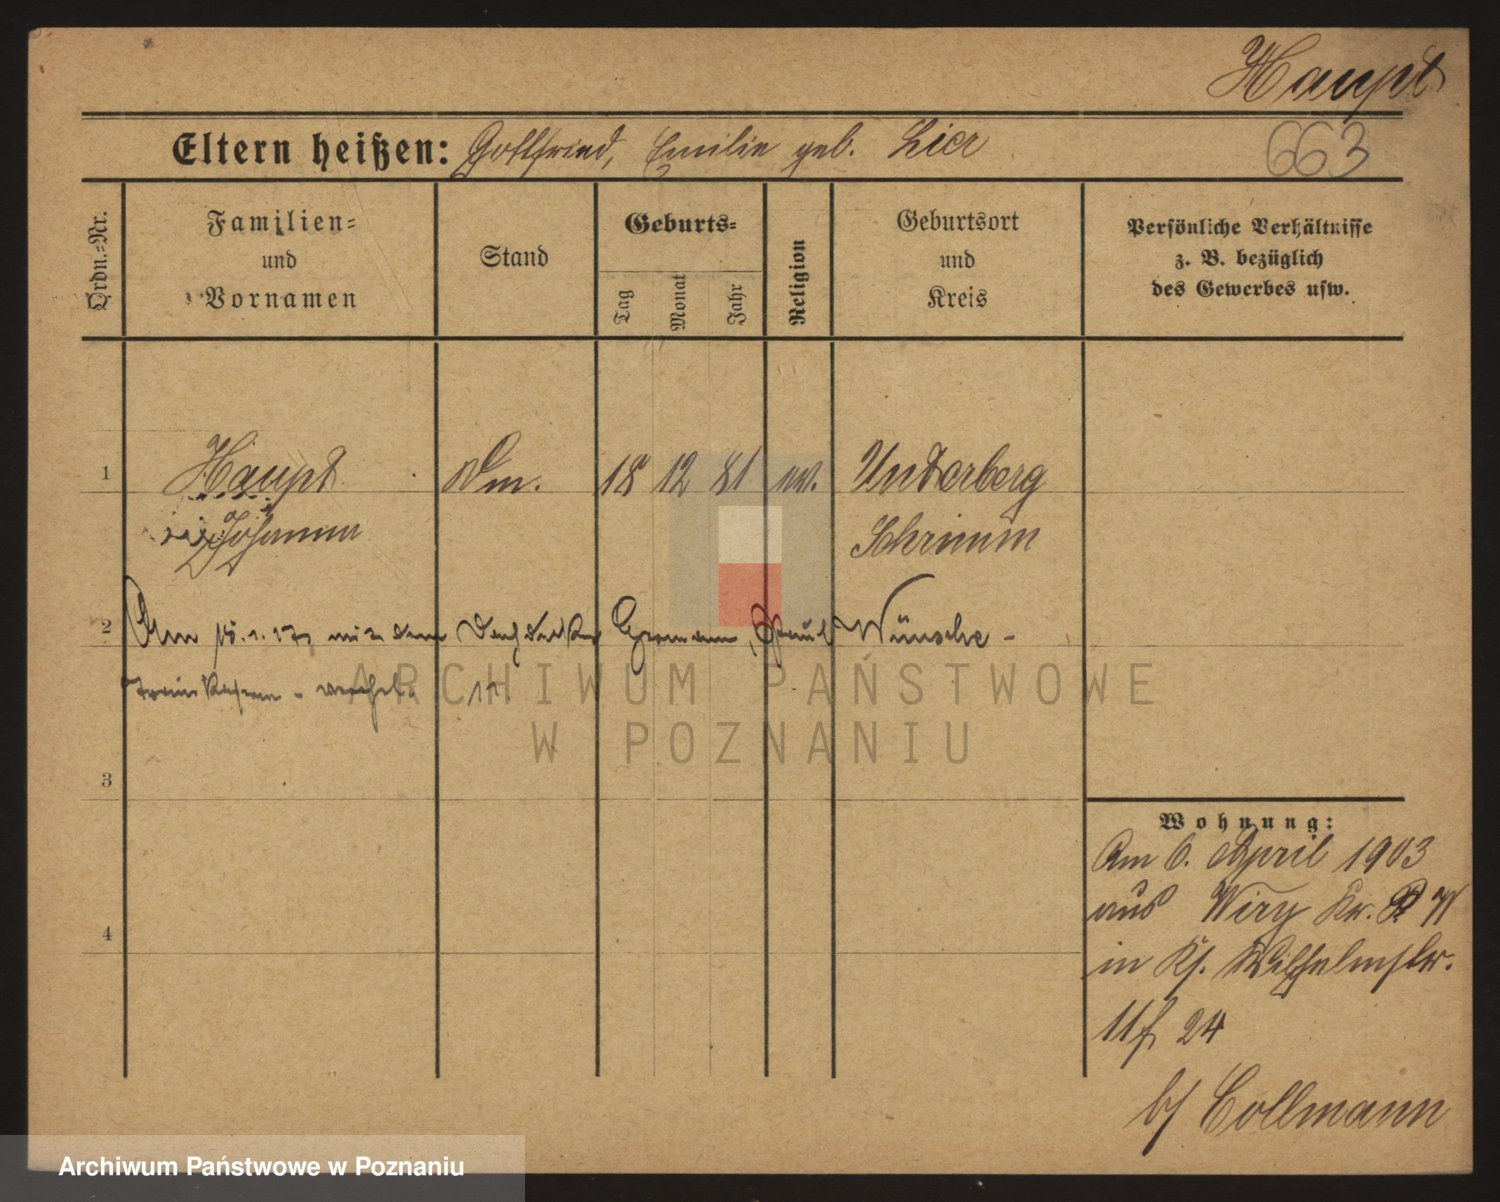 Haupt
Eltern heißen: Gottfried, Emilie geb. Lier
663
Ordn.-Nr.
Familien-
und
Vornamen
Stand
Geburts-
Tag
Monat
Jahr
Religion
Geburtsort
und
Kreis
Persönliche Verhältnisse
z. B. bezüglich
des Gewerbes usw.
1
Haupt
18 12 81
Unterberg
Johanna
Schrimm
2
Am mit dem Dachdecker Hermann, Paul Wünsche -
ARCHIWUM PAŃSTWOWE
W POZNANIU
3
Wohnung:
Am 6. April 1903
aus Wiry Kr. P W
in Kf. Wilhelmstr.
24
4
b/ Collmann
Archiwum Państwowe w Poznaniu